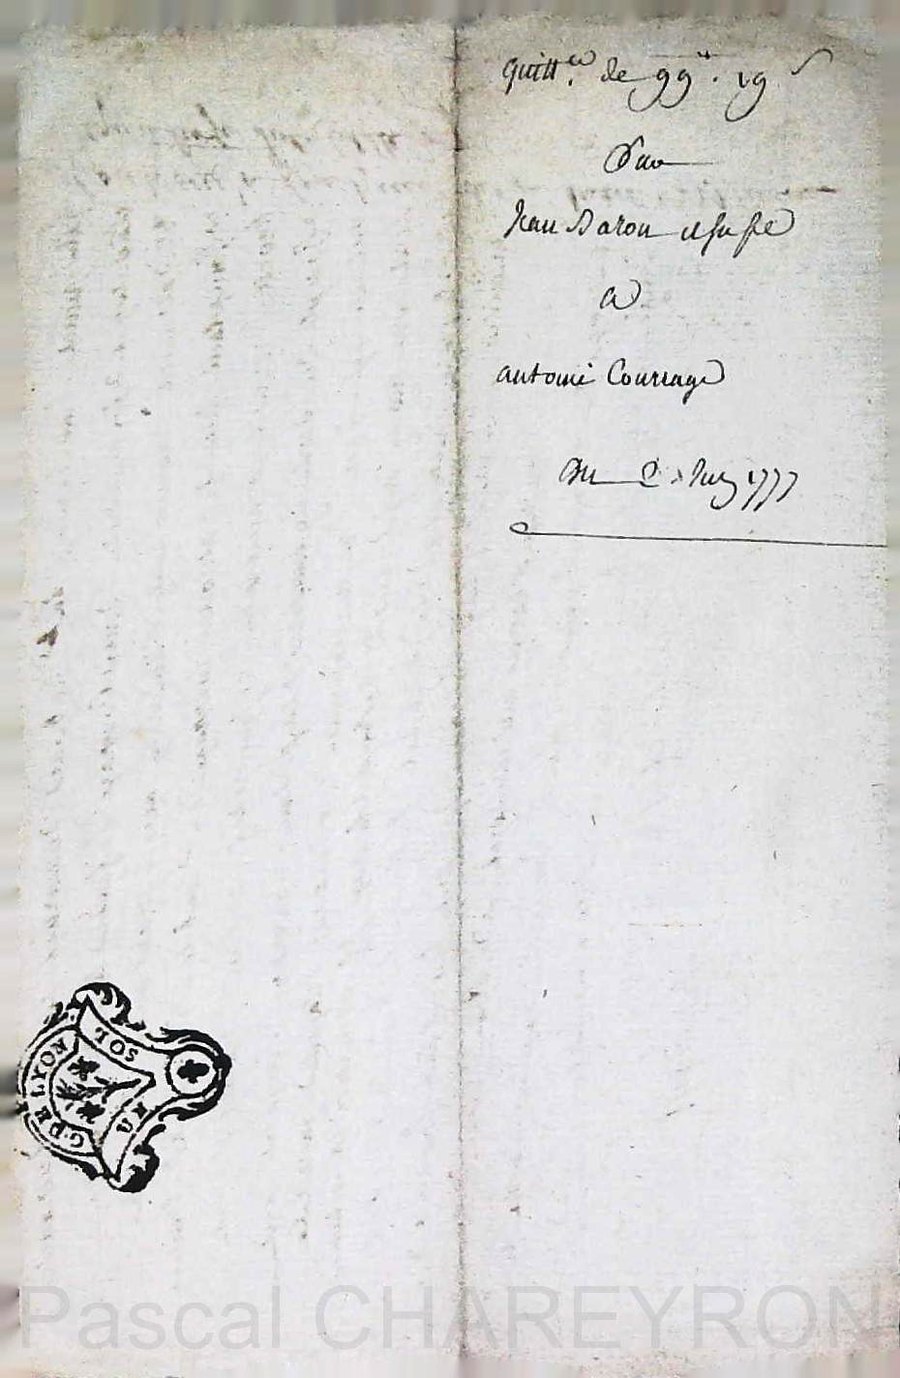 Quitt.ce de 99ll. 19 s
Par
Jean Baron et sa fe
a
antoine Courrage
Du 2 1777
G. DE LYON
UN SOL
Pascal CHAREYRON